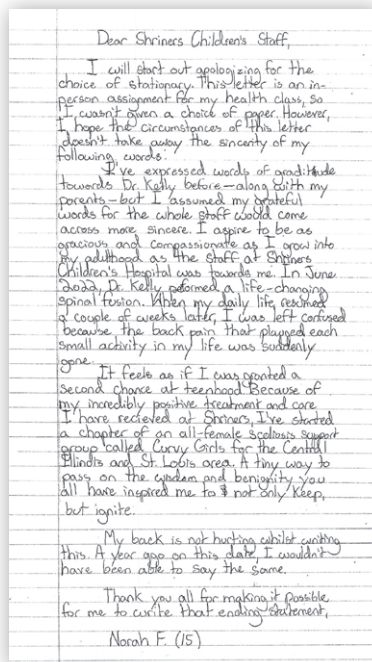 Dear Shriners Children's Staff,
I will start out apologizing for the
choice of stationary. This letter is an in-
person assignment for my health class, so
I wasn't given a choice of paper. However,
I hope the circumstances of this letter
doesn't take away the sincerity of my
following words.
I've expressed words of graditude
towords Dr. Kelly before—along with my
parents—but I assumed my grateful
words for the whole staff would come
across more sincere. I aspire to be as
gracious and compassionate as I grow into
my adulthood as the staff at Shriners
Children's Hospital was towards me. In June
2022, Dr. Kelly peformed a life-changing
spinal fusion. When my daily life resumed
a couple of weeks later, I was left confused
because the back pain that plagued each
small activity in my life was suddenly
gone.
It feels as if I was granted a
second chance at teenhood. Because of
my incredibly positive treatment and care
I have recieved at Shriners, I've started
a chapter of an all-female scoliosis support
group called Curvy Girls for the Central
Illinois and St. Louis area. A tiny way to
pass on the wisdom and benignity you
all have inspired me to not only keep,
but ignite.
My back is not hurting whilst writing
this. A year ago on this date, I wouldn't
have been able to say the same.
Thank you all for making it possible
for me to write that ending statement,
Norah F. (15)